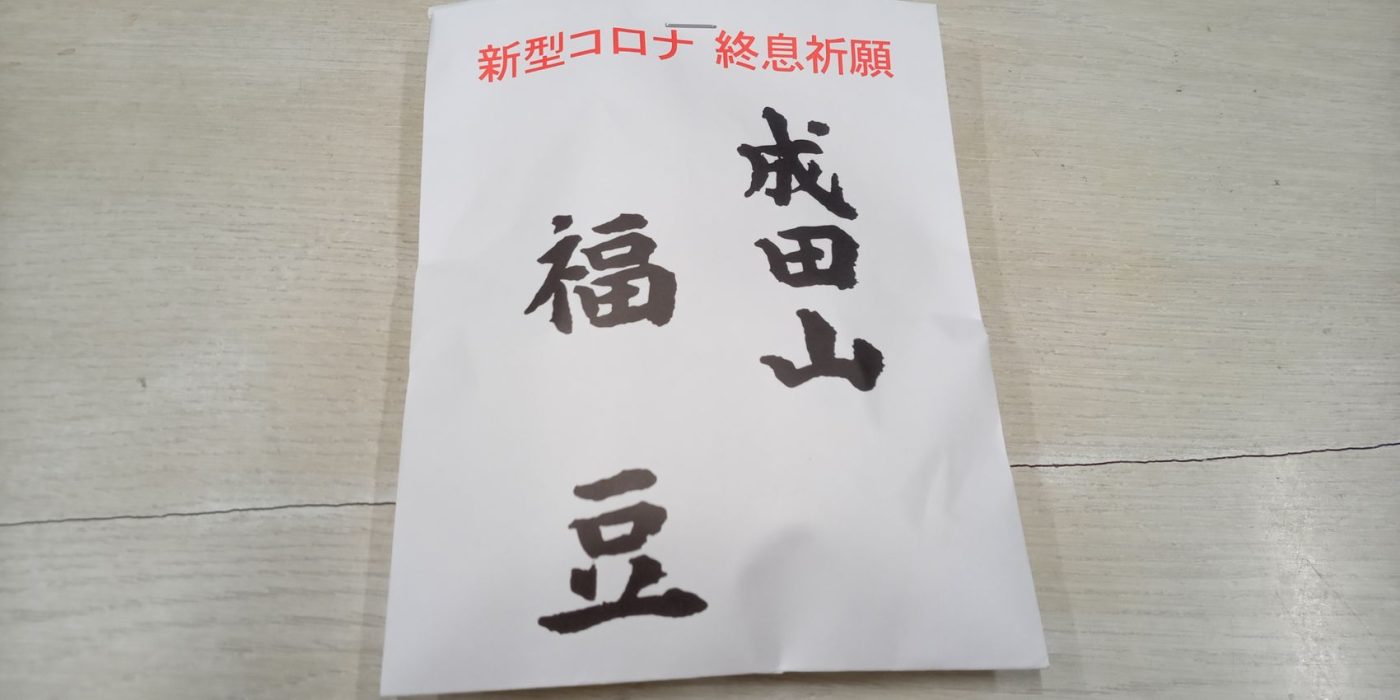 新型コロナ 終息祈願
成田山
福豆